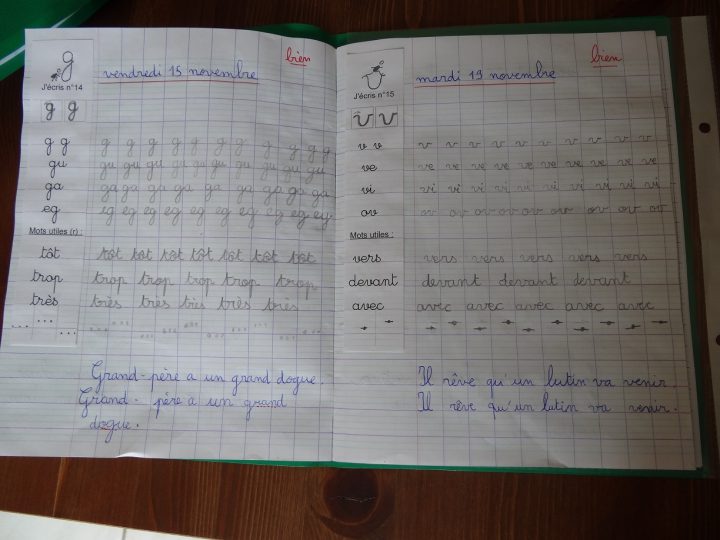 g
bien
vendredi 15 novembre
J'écris n°14
g g
g g g g g g g g g g g g
gu gu gu gu gu gu gu gu gu gu gu
ga ga ga ga ga ga ga ga ga ga
eg eg eg eg eg eg eg eg eg eg
Mots utiles (r) :
tôt tôt tôt tôt tôt tôt tôt
trop trop trop trop trop trop
très très très très très très
Grand-père a un grand dogue.
Grand-père a un grand
dogue.
bien
mardi 19 novembre
J'écris n°15
v v
v v v v v v v v v v v v
ve ve ve ve ve ve ve ve ve ve ve
vi vi vi vi vi vi vi vi vi vi vi
ov ov ov ov ov ov ov ov
Mots utiles :
vers vers vers vers vers vers
devant devant devant devant
avec avec avec avec avec avec
Il rêve qu'un lutin va venir.
Il rêve qu'un lutin va venir.